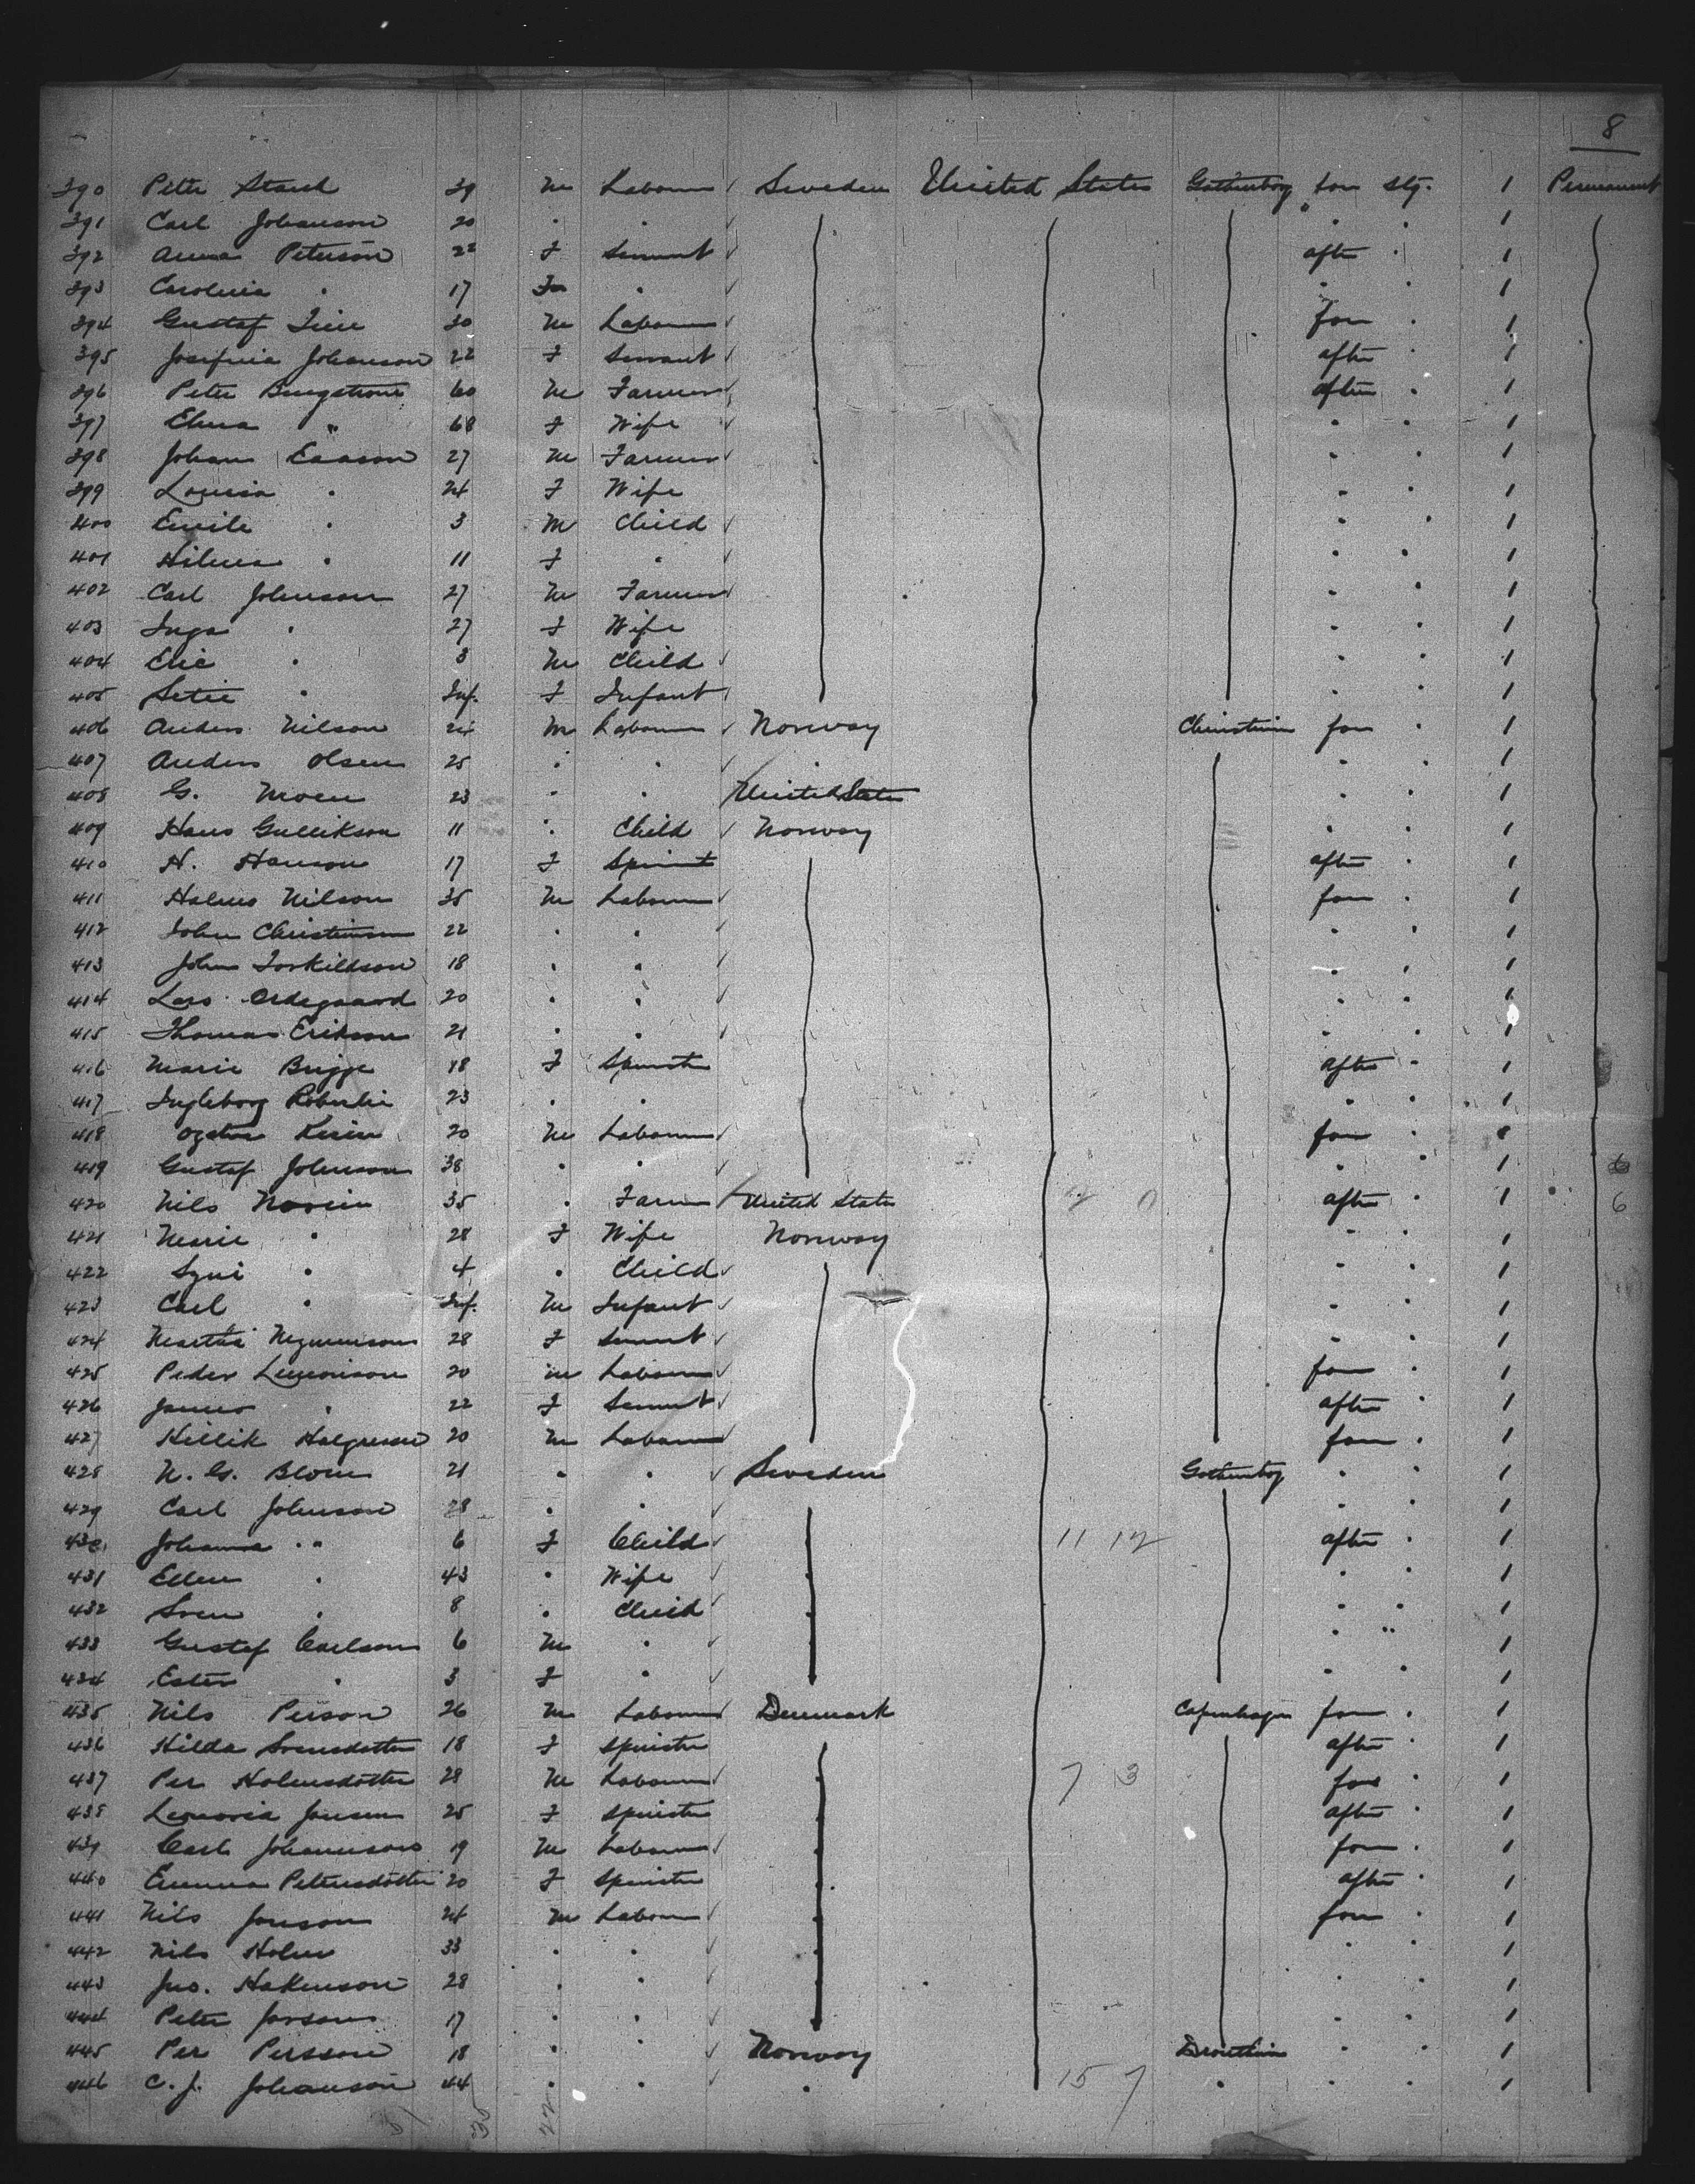 8
390 Peter Starck 39 m Labourer Sweden United States Gothenborg for stg. 1 Permanent
391 Carl Johanson 20 " " " " 1
392 Anna Peterson 22 F Servant aft " 1
393 Carolina " 17 F " " " 1
394 Gustaf 30 m Labourer for " 1
395 Josefina Johanson 22 F Servant aft " 1
396 Peter Bergstrom 60 m Farmer aft " 1
397 Elma " 68 F Wife " " 1
398 Johan Eaason 27 m Farmer " " 1
399 Louisa " 24 F Wife " " 1
400 Emile " 3 m Child " " 1
401 Hilma " 11 F " " " 1
402 Carl Johnson 27 m Farmer " " 1
403 Inga " 27 F Wife " " 1
404 Eric " 3 m Child " " 1
405 " Inf. F Infant " " 1
406 Anders Nilson 24 m Labourer Norway Christiania for " 1
407 Anders Olsen 25 " " " " " 1
408 G. Moen 23 " " United States " " 1
409 Hans Gullikson 11 " Child Norway " " 1
410 H. Hanson 17 F Spinst aft " 1
411 Nilson 35 m Labourer for " 1
412 John Christianson 22 " " " " 1
413 John Torkildson 18 " " " " 1
414 Lars Ardegaard 20 " " " " 1
415 Thomas Erikson 21 " " " " 1
416 Marie Brigge 18 F Spinster aft " 1
417 Ingleborg 23 " " " " 1
418 20 m Labourer for " 1
419 Gustaf Johnson 38 " " " " 1 6
420 Nils 35 " Farm United States 2 0 aft " 1 6
421 Marie " 28 F Wife Norway " " 1
422 " 4 " Child " " 1
423 Carl " Inf. m Infant " " 1
424 28 F Servant " " 1
425 Peder 20 m Labourer for " 1
426 " 22 F Servant aft " 1
427 20 m Labourer for " 1
428 N. G. Blom 21 " " Sweden Gothenbog " " 1
429 Carl Johnson 28 " " " " 1
430 Johanna " 6 F Child 11 12 aft " 1
431 Ellen " 43 " Wife " " 1
432 Sven " 8 " Child " " 1
433 Gustaf Carlson 6 m " " " 1
434 Ester " 3 F " " " 1
435 Nils Person 26 m Labourer Denmark Copenhagen for " 1
436 Hilda Svensdotter 18 F Spinster aft " 1
437 Per Holmsdotter 28 m Labourer 7 3 for " 1
438 Jensen 25 F Spinster aft " 1
439 Carl Johannsons 19 m Labourer for " 1
440 Emma Petersdotter 20 F Spinster aft " 1
441 Nils Jonson 24 m Labourer for " 1
442 Nils Holm 33 " " " " 1
443 Jno. Hakenson 28 " " " " 1
444 Peter Jonson 17 " " " " 1
445 Per Persson 18 " " Norway Drontheim " " 1
446 C. J. Johanson 44 " " " 15 7 " " " 1